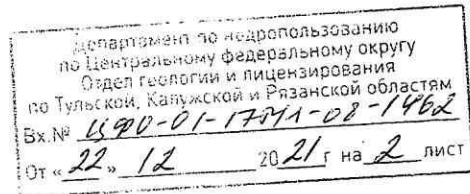 Департамент по недропользованию
по Центральному федеральному округу
Отдел геологии и лицензирования
по Тульской, Калужской и Рязанской областям
Вх.№ ЦФО-01-17ТУЛ-08-1462
От «22» 12 2021 г на 2 лист